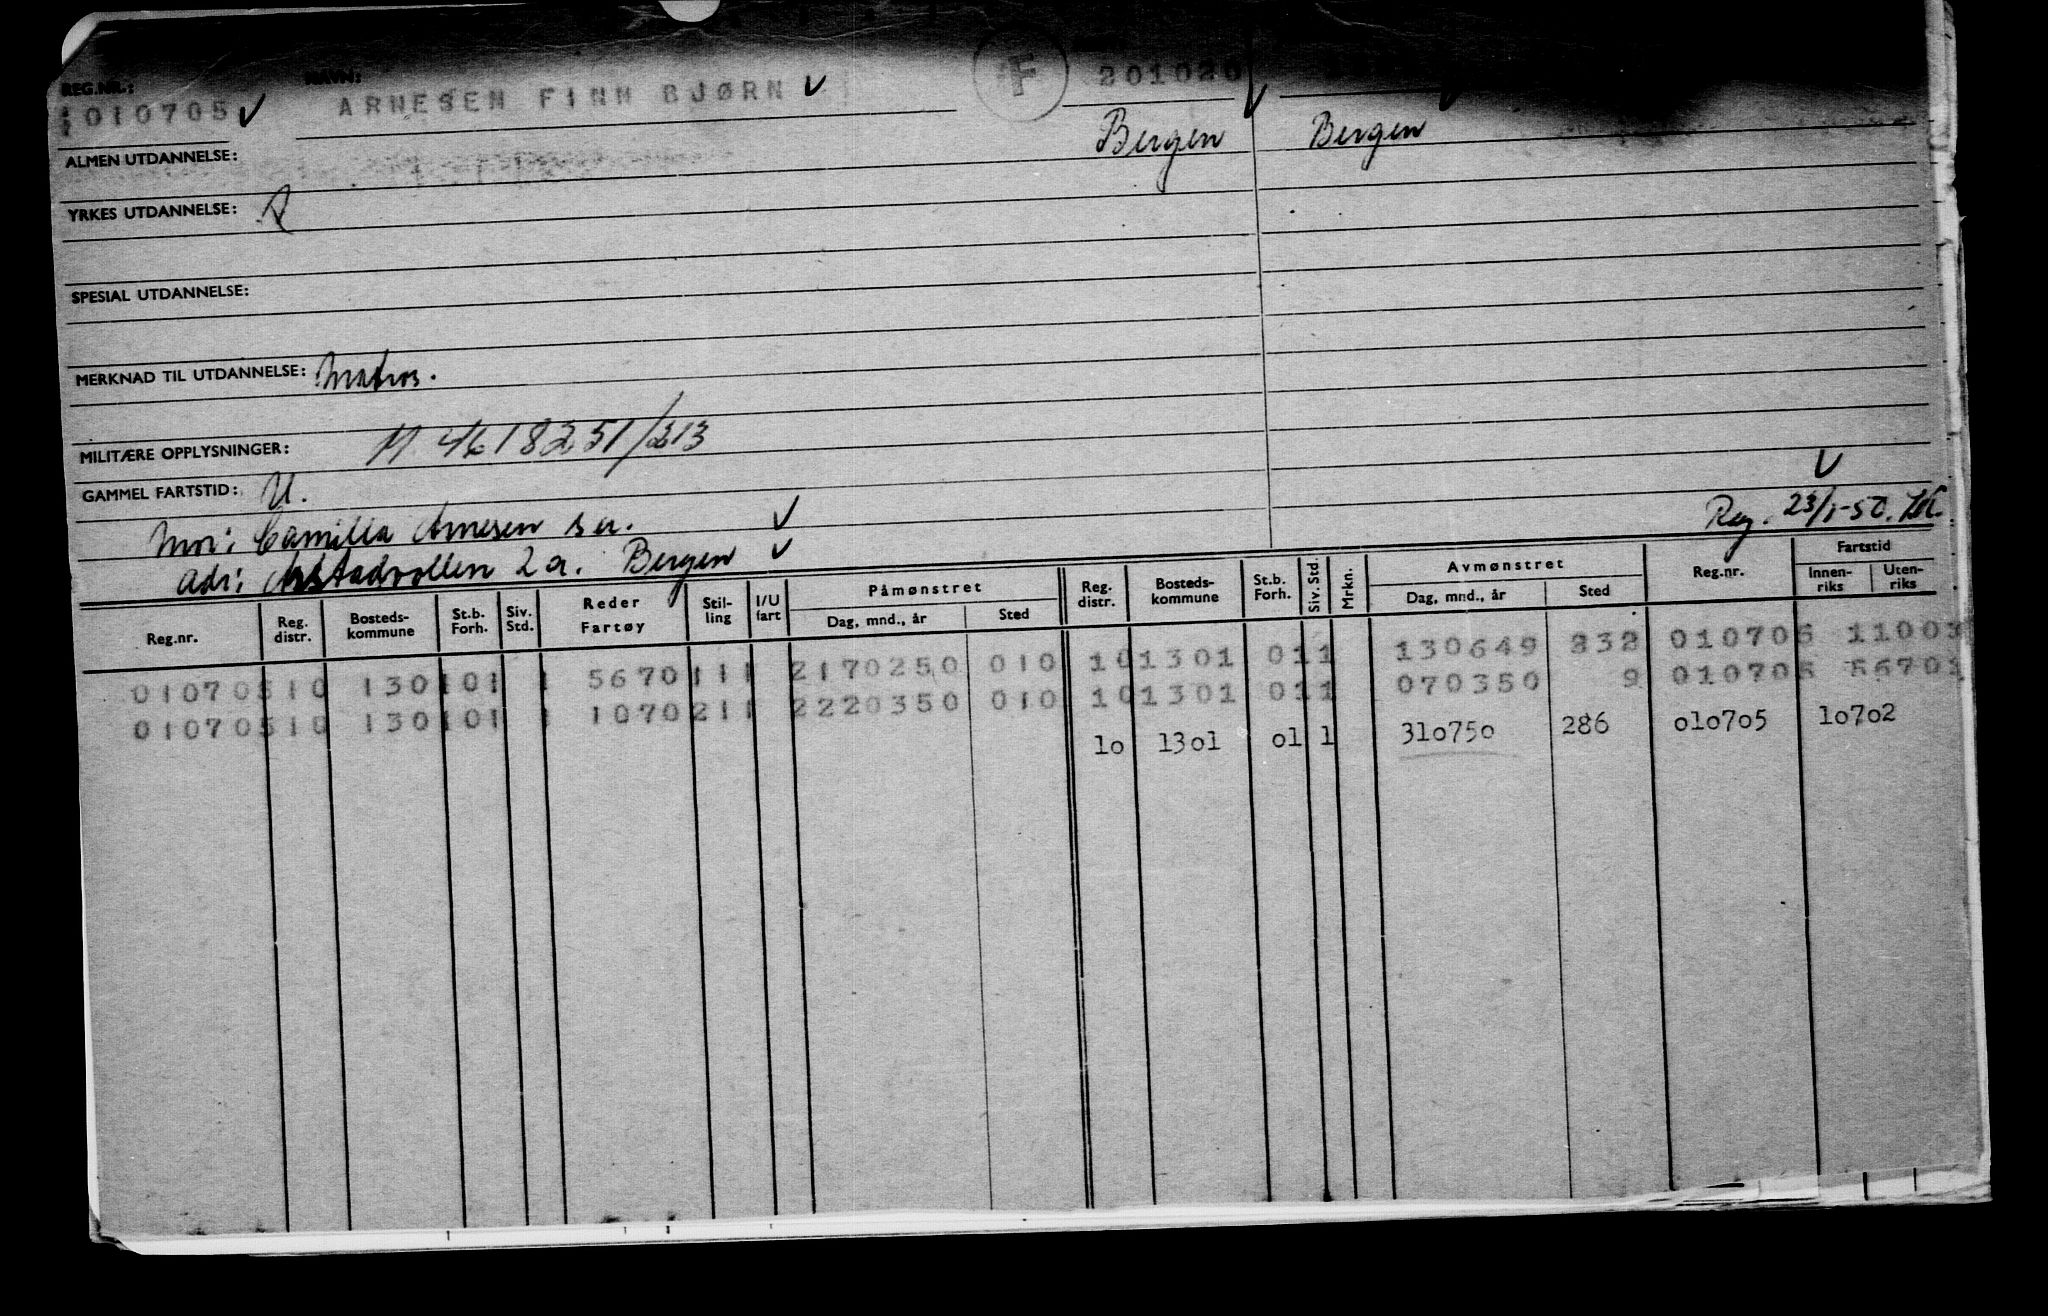 REG.NR.: NAVN:
1010705 ✓ ARNESEN FINN BJØRN ✓ F 201020
ALMEN UTDANNELSE: Bergen Bergen
YRKES UTDANNELSE:
SPESIAL UTDANNELSE:
MERKNAD TIL UTDANNELSE: Matros.
MILITÆRE OPPLYSNINGER: M 4618251/213
GAMMEL FARTSTID: U.
Mor: Camilla Arnesen s.a. ✓ Reg. 23/1-50.
Adr: Årstadvollen 2a. Bergen ✓
Reg.nr. Reg. distr. Bosteds-kommune St.b. Forh. Siv. Std. Reder Fartøy Stil-ling I/U fart Påmønstret Dag, mnd., år Sted Reg. distr. Bosteds-kommune St.b. Forh. Siv. Std. Mrkn. Avmønstret Dag, mnd., år Sted Reg.nr. Fartstid Innen-riks Uten-riks
10 1301 01 1 130649 332 010705 11001
010705 10 1301 01 1 5670 111 2170250 010 10 1301 01 1 070350 9 010705 56701
010705 10 1301 01 1 1070 211 2220350 010
10 1301 01 1 310750 286 010705 10702